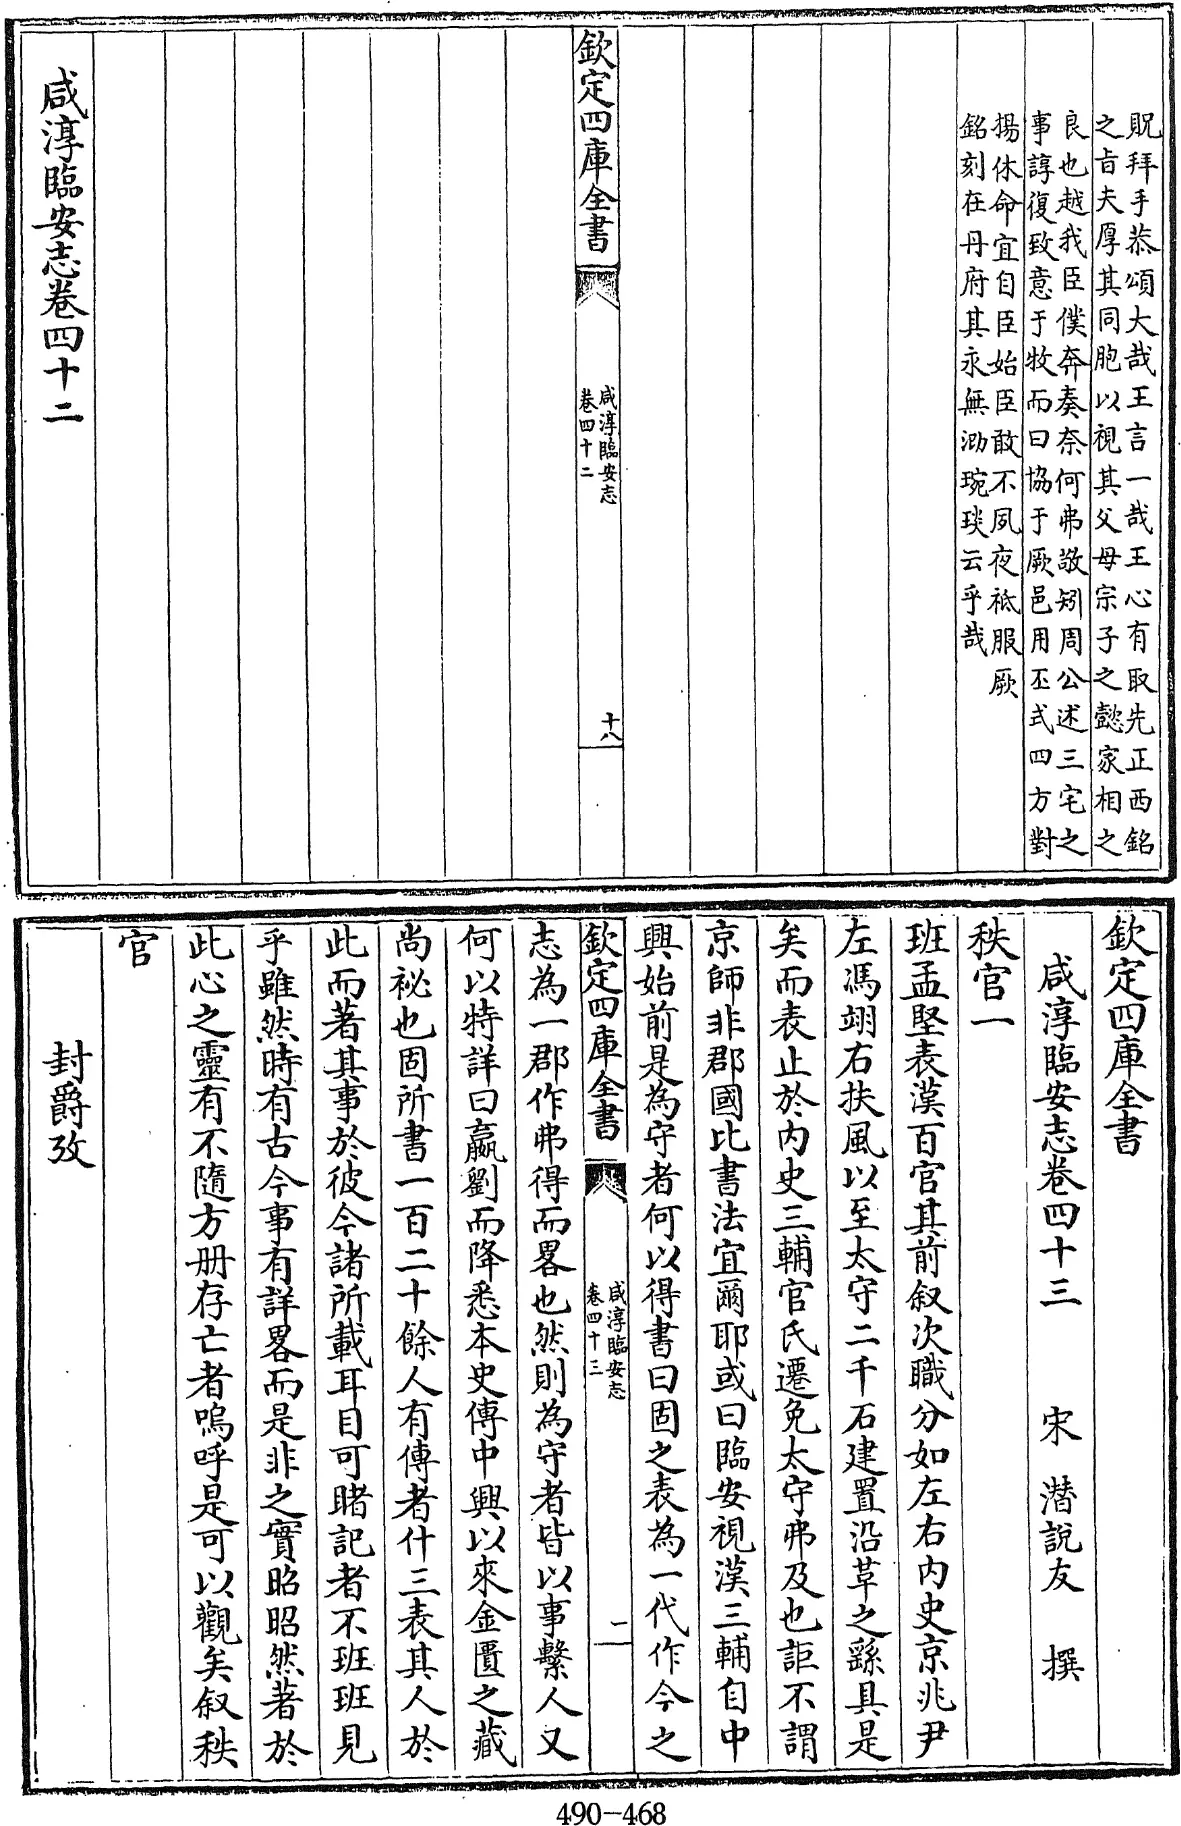 貺拜手恭頌大哉王言一哉王心有取先正西銘
之㫖夫厚其同胞以視其父母宗子之懿家相之
良也越我臣僕奔奏奈何弗敬矧周公述三宅之
事諄復致意于牧而曰協于厥邑用丕式四方對
揚休命宜自臣始臣敢不夙夜祗服厥
銘刻在丹府其永無泐琬琰云乎哉
欽定四庫全書
咸淳臨安志
卷四十二
十八
咸淳臨安志卷四十二
欽定四庫全書
咸淳臨安志卷四十三 宋 潛說友 撰
秩官一
班孟堅表漢百官其前叙次職分如左右内史京兆尹
左馮翊右扶風以至太守二千石建置沿革之繇具是
矣而表止於内史三輔官氏遷免太守弗及也詎不謂
京師非郡國比書法宜爾耶或曰臨安視漢三輔自中
興始前是為守者何以得書曰固之表為一代作今之
欽定四庫全書
咸淳臨安志
卷四十三
一
志為一郡作弗得而畧也然則為守者皆以事繫人又
何以特詳曰嬴劉而降悉本史傳中興以來金匱之藏
尚祕也固所書一百二十餘人有傳者什三表其人於
此而著其事於彼今諸所載耳目可睹記者不班班見
乎雖然時有古今事有詳畧而是非之實昭昭然著於
此心之靈有不隨方册存亡者嗚呼是可以觀矣叙秩
官
封爵攷
490-468